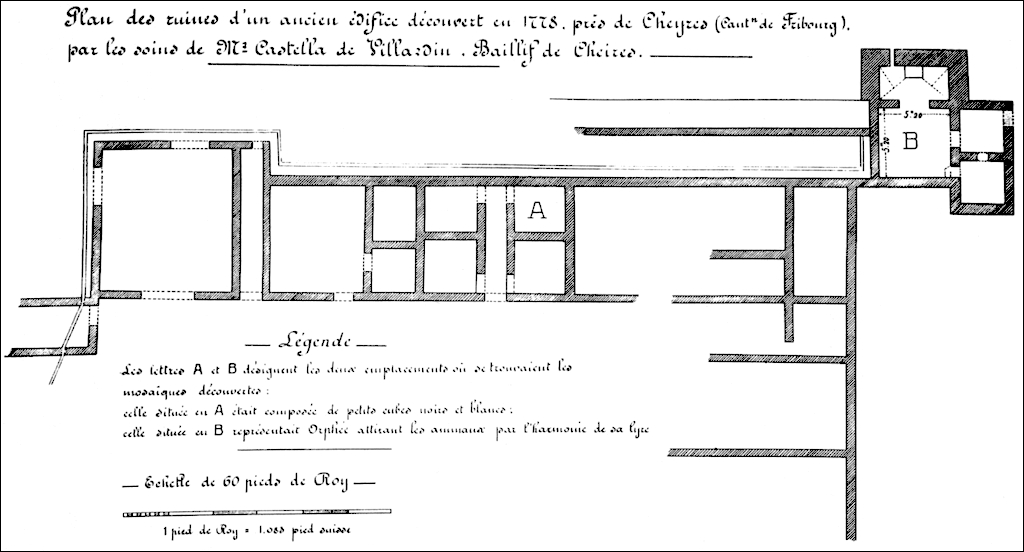 Plan des ruines d'un ancien édifice découvert en 1778. près de Cheyres (Cantⁿ de Fribourg).
par les soins de Mʳ Castella de Villardin. Baillif de Cheires.
5ᵐ20
B
5ᵐ20
A
Légende
Les lettres A et B désignent les deux emplacements où se trouvaient les
mosaïques découvertes:
celle située en A était composée de petits cubes noirs et blancs;
celle située en B représentait Orphée attirant les animaux par l'harmonie de sa lyre
Echelle de 60 pieds de Roy
1 pied de Roy = 1.083 pied suisse